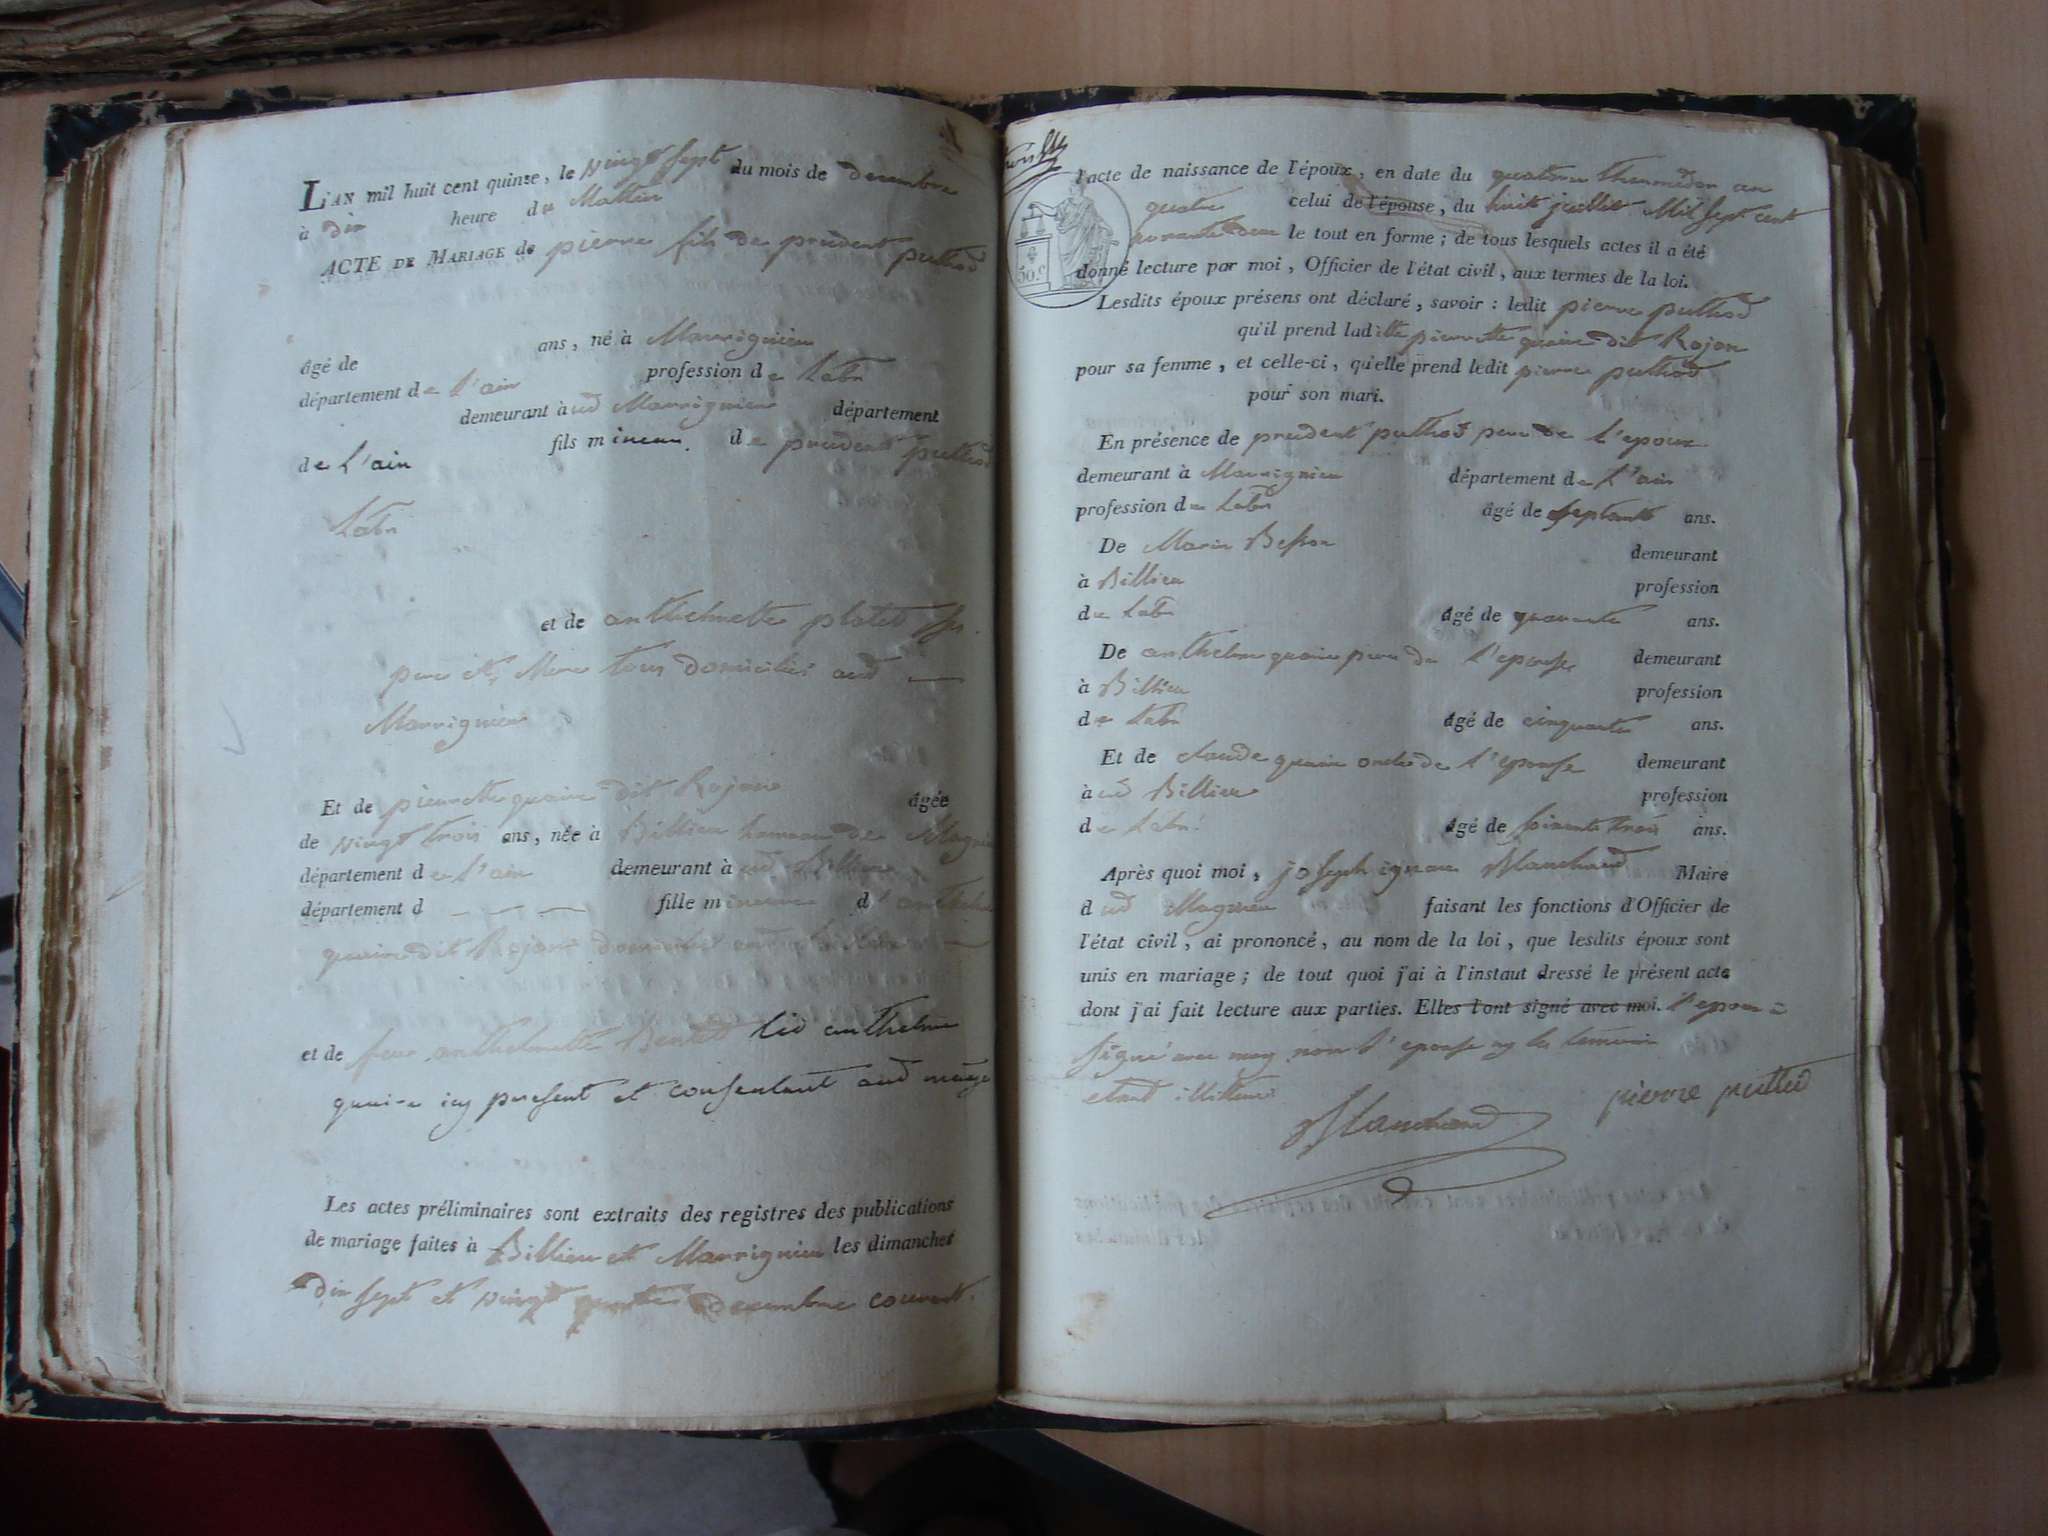 L'AN mil huit cent quinze, le vingt sept du mois de decembre
à dix heure du Mattin
ACTE DE MARIAGE de pierre fils de prudent puthod
âgé de ans, né à Marrignieu
département de l'ain profession de Labr
demeurant à ud Marrignieu département
de l'ain fils mineur de prudent puthod
Labr
et de anthelmette platet
pere et Mere tous domiciliés aud
Marrignieu
Et de pierrette quaire dit Rojon âgée
de vingt trois ans, née à Billieu hameau de Magnieu
département de l'ain demeurant à ud Billieu
département d fille mineure d'anthelme
quaire dit Rojon
et de feue anthelmette led anthelme
quaire icy present et consentant aud mariage
Les actes préliminaires sont extraits des registres des publications
de mariage faites à Billieu et Marrignieu les dimanches
dix sept et vingt quatre decembre courant.
l'acte de naissance de l'époux, en date du quatorze thermidor an
quatre celui de l'épouse, du huit juillet Mil sept cent
le tout en forme; de tous lesquels actes il a été
donné lecture par moi, Officier de l'état civil, aux termes de la loi.
50.c
Lesdits époux présens ont déclaré, savoir: ledit pierre puthod
qu'il prend laditte pierrette quaire dit Rojon
pour sa femme, et celle-ci, qu'elle prend ledit pierre puthod
pour son mari.
En présence de prudent puthod pere de l'epoux
demeurant à Marrignieu département de l'ain
profession de Labr âgé de septante ans.
De Marin Besson demeurant
à Billieu profession
de Labr âgé de quarante ans.
De anthelme quaire pere de l'epouse demeurant
à Billieu profession
de Labr âgé de cinquante ans.
Et de claude quaire oncle de l'epouse demeurant
à ud Billieu profession
de Labr âgé de soixante trois ans.
Après quoi moi, joseph ignace Marchand Maire
dud Magnieu faisant les fonctions d'Officier de
l'état civil, ai prononcé, au nom de la loi, que lesdits époux sont
unis en mariage; de tout quoi j'ai à l'instaut dressé le présent acte
dont j'ai fait lecture aux parties. Elles l'ont signé avec moi. l'epoux a
signé avec moy non l'epouse ny les temoins
etant illiteres
Marchand pierre puthod